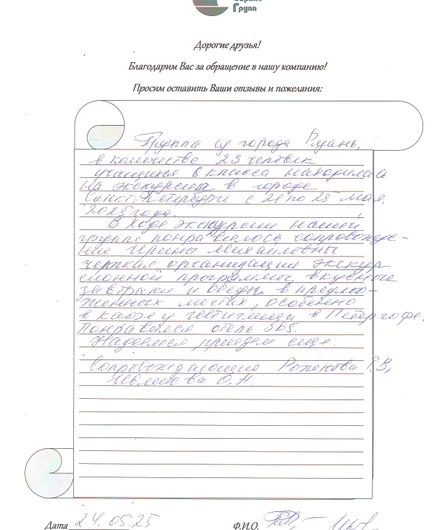 Групп
Дорогие друзья!
Благодарим Вас за обращение в нашу компанию!
Просим оставить Ваши отзывы и пожелания:
Группа из города Рязань,
в количестве 23 человек
учащихся 8 класса находилась
на экскурсии в городе
Санкт-Петербурге с 21 по 25 мая
2025 года.
В ходе экскурсии нашей
группе понравилось сопровожде-
ние Ирины Михайловны
четкая организация экскур
сионной программы, вкусные
завтраки и обеды в предло-
женных местах, особенно
в кафе у гостиницы в Петергофе.
Понравился отель SPS.
Надеемся приедем еще.
Сопровождающие
О.А.
Дата 24.05.25
Ф.И.О.